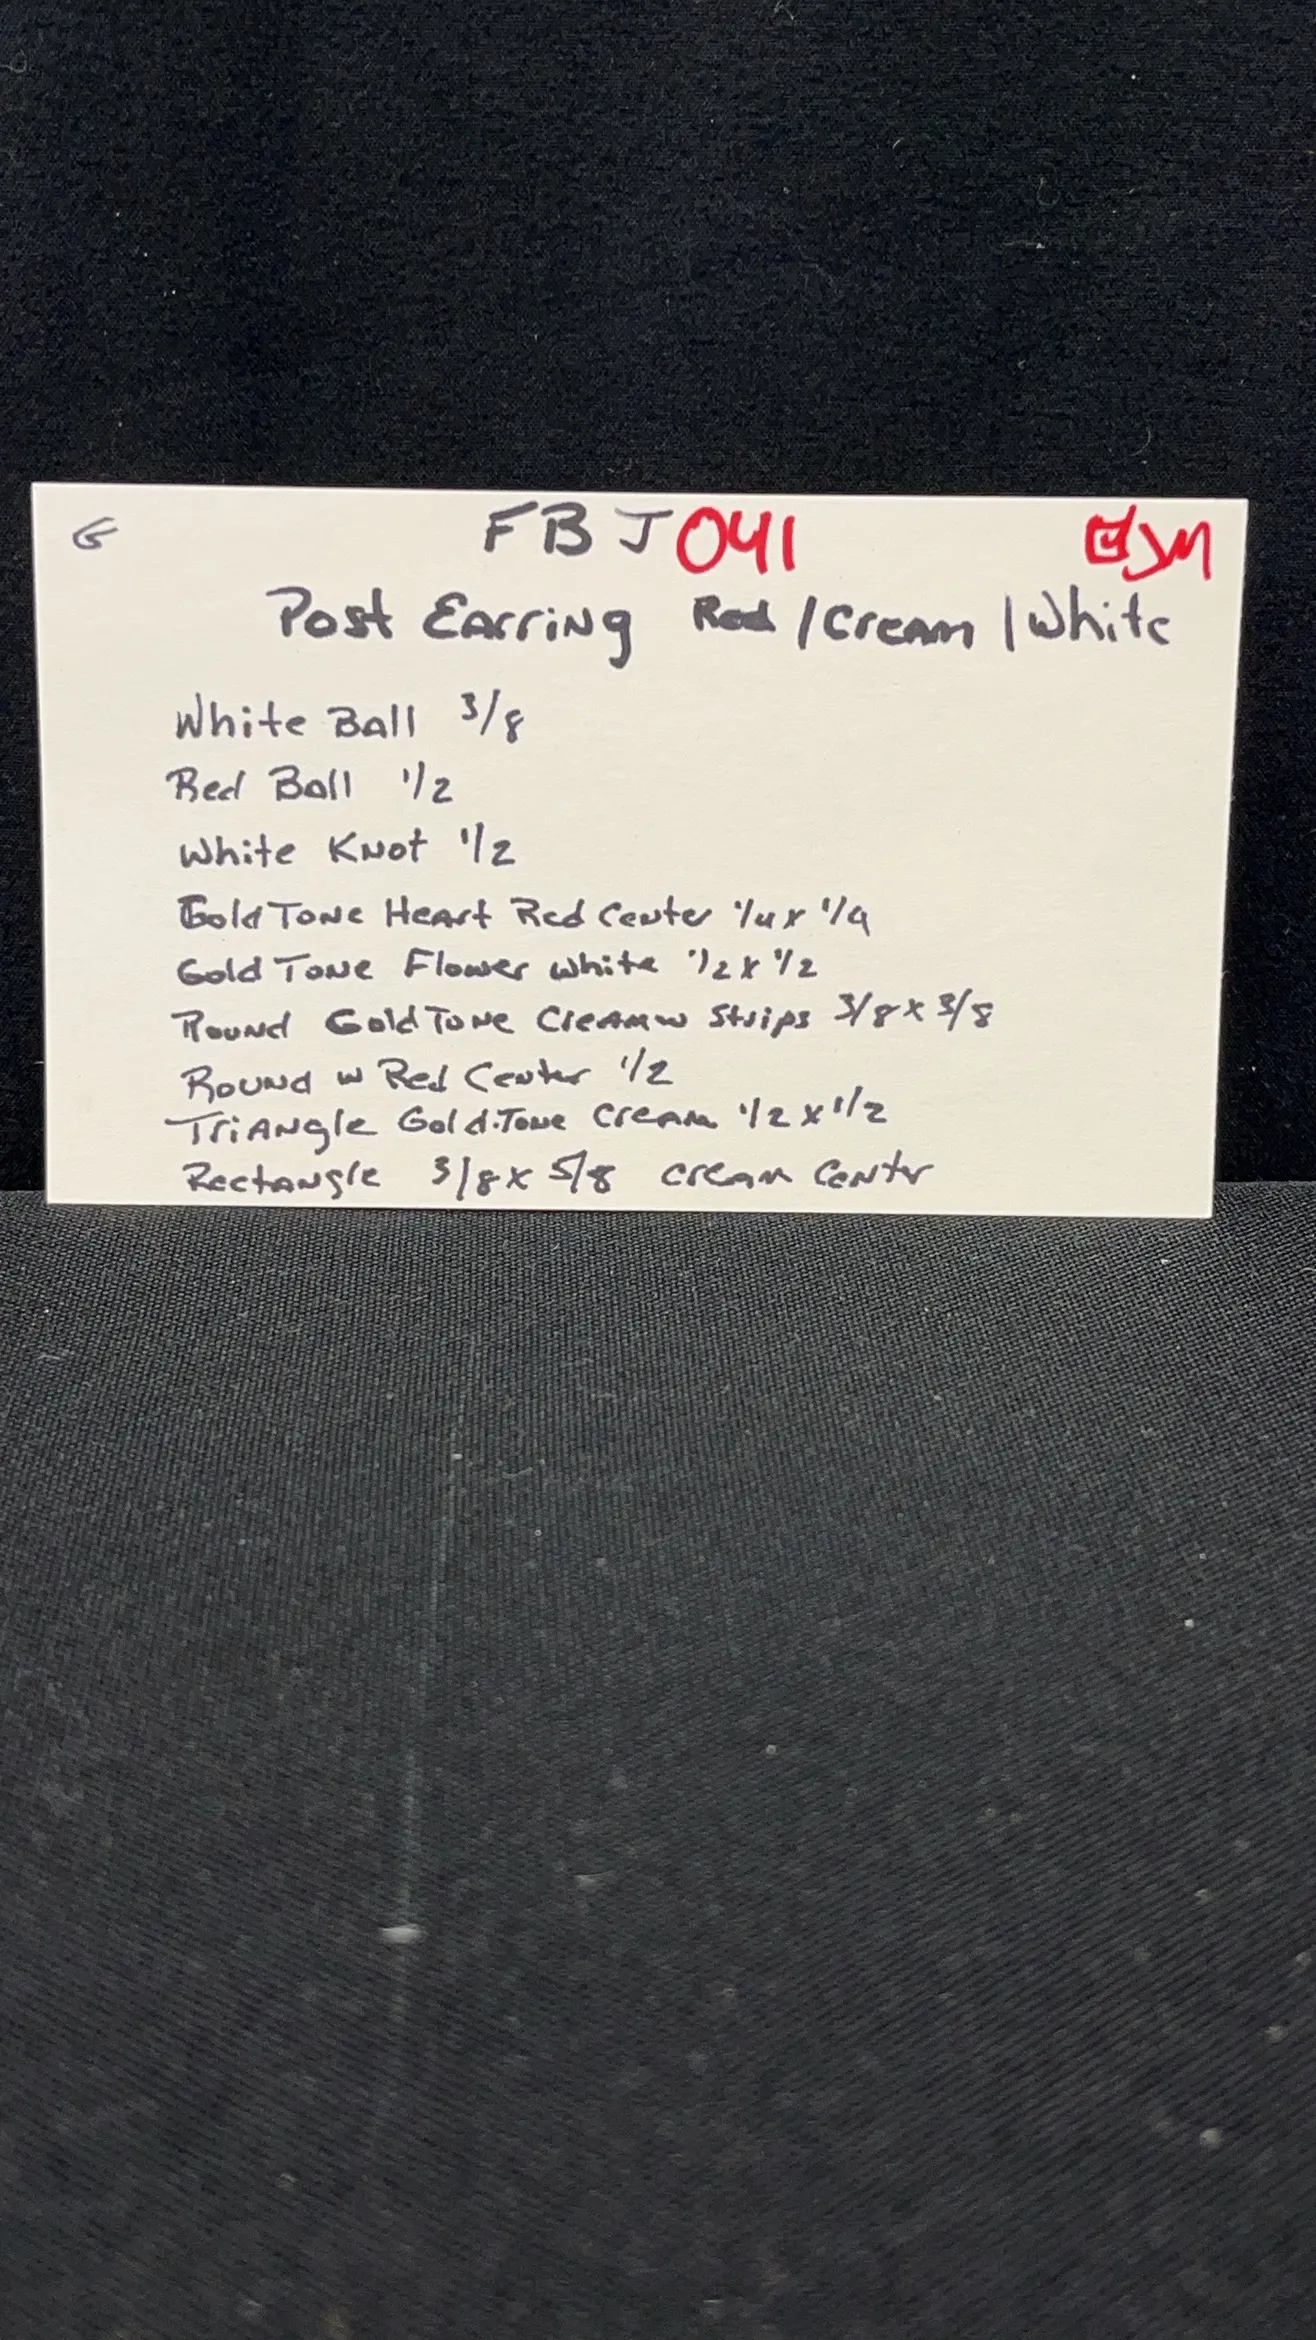 G FBJ041
Post Earring Red / Cream / White
White Ball 3/8
Red Ball 1/2
White Knot 1/2
Gold Tone Heart Red Center 1/4 x 1/4
Gold Tone Flower White 1/2 x 1/2
Round Gold Tone Cream w Strips 3/8 x 3/8
Round w Red Center 1/2
Triangle Gold-Tone Cream 1/2 x 1/2
Rectangle 3/8 x 5/8 Cream Center